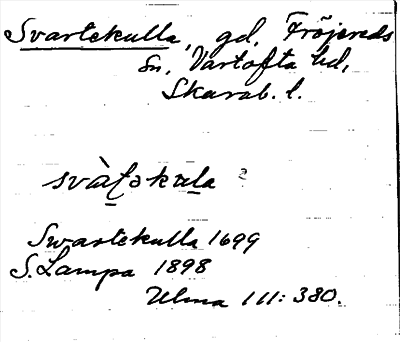 Svartekulla, gd, Fröjereds
sn, Vartofta hd,
Skarab. l.
svàʈəkula 2
Swartekulla 1699
S. Lampa 1898
Ulma 111: 380.